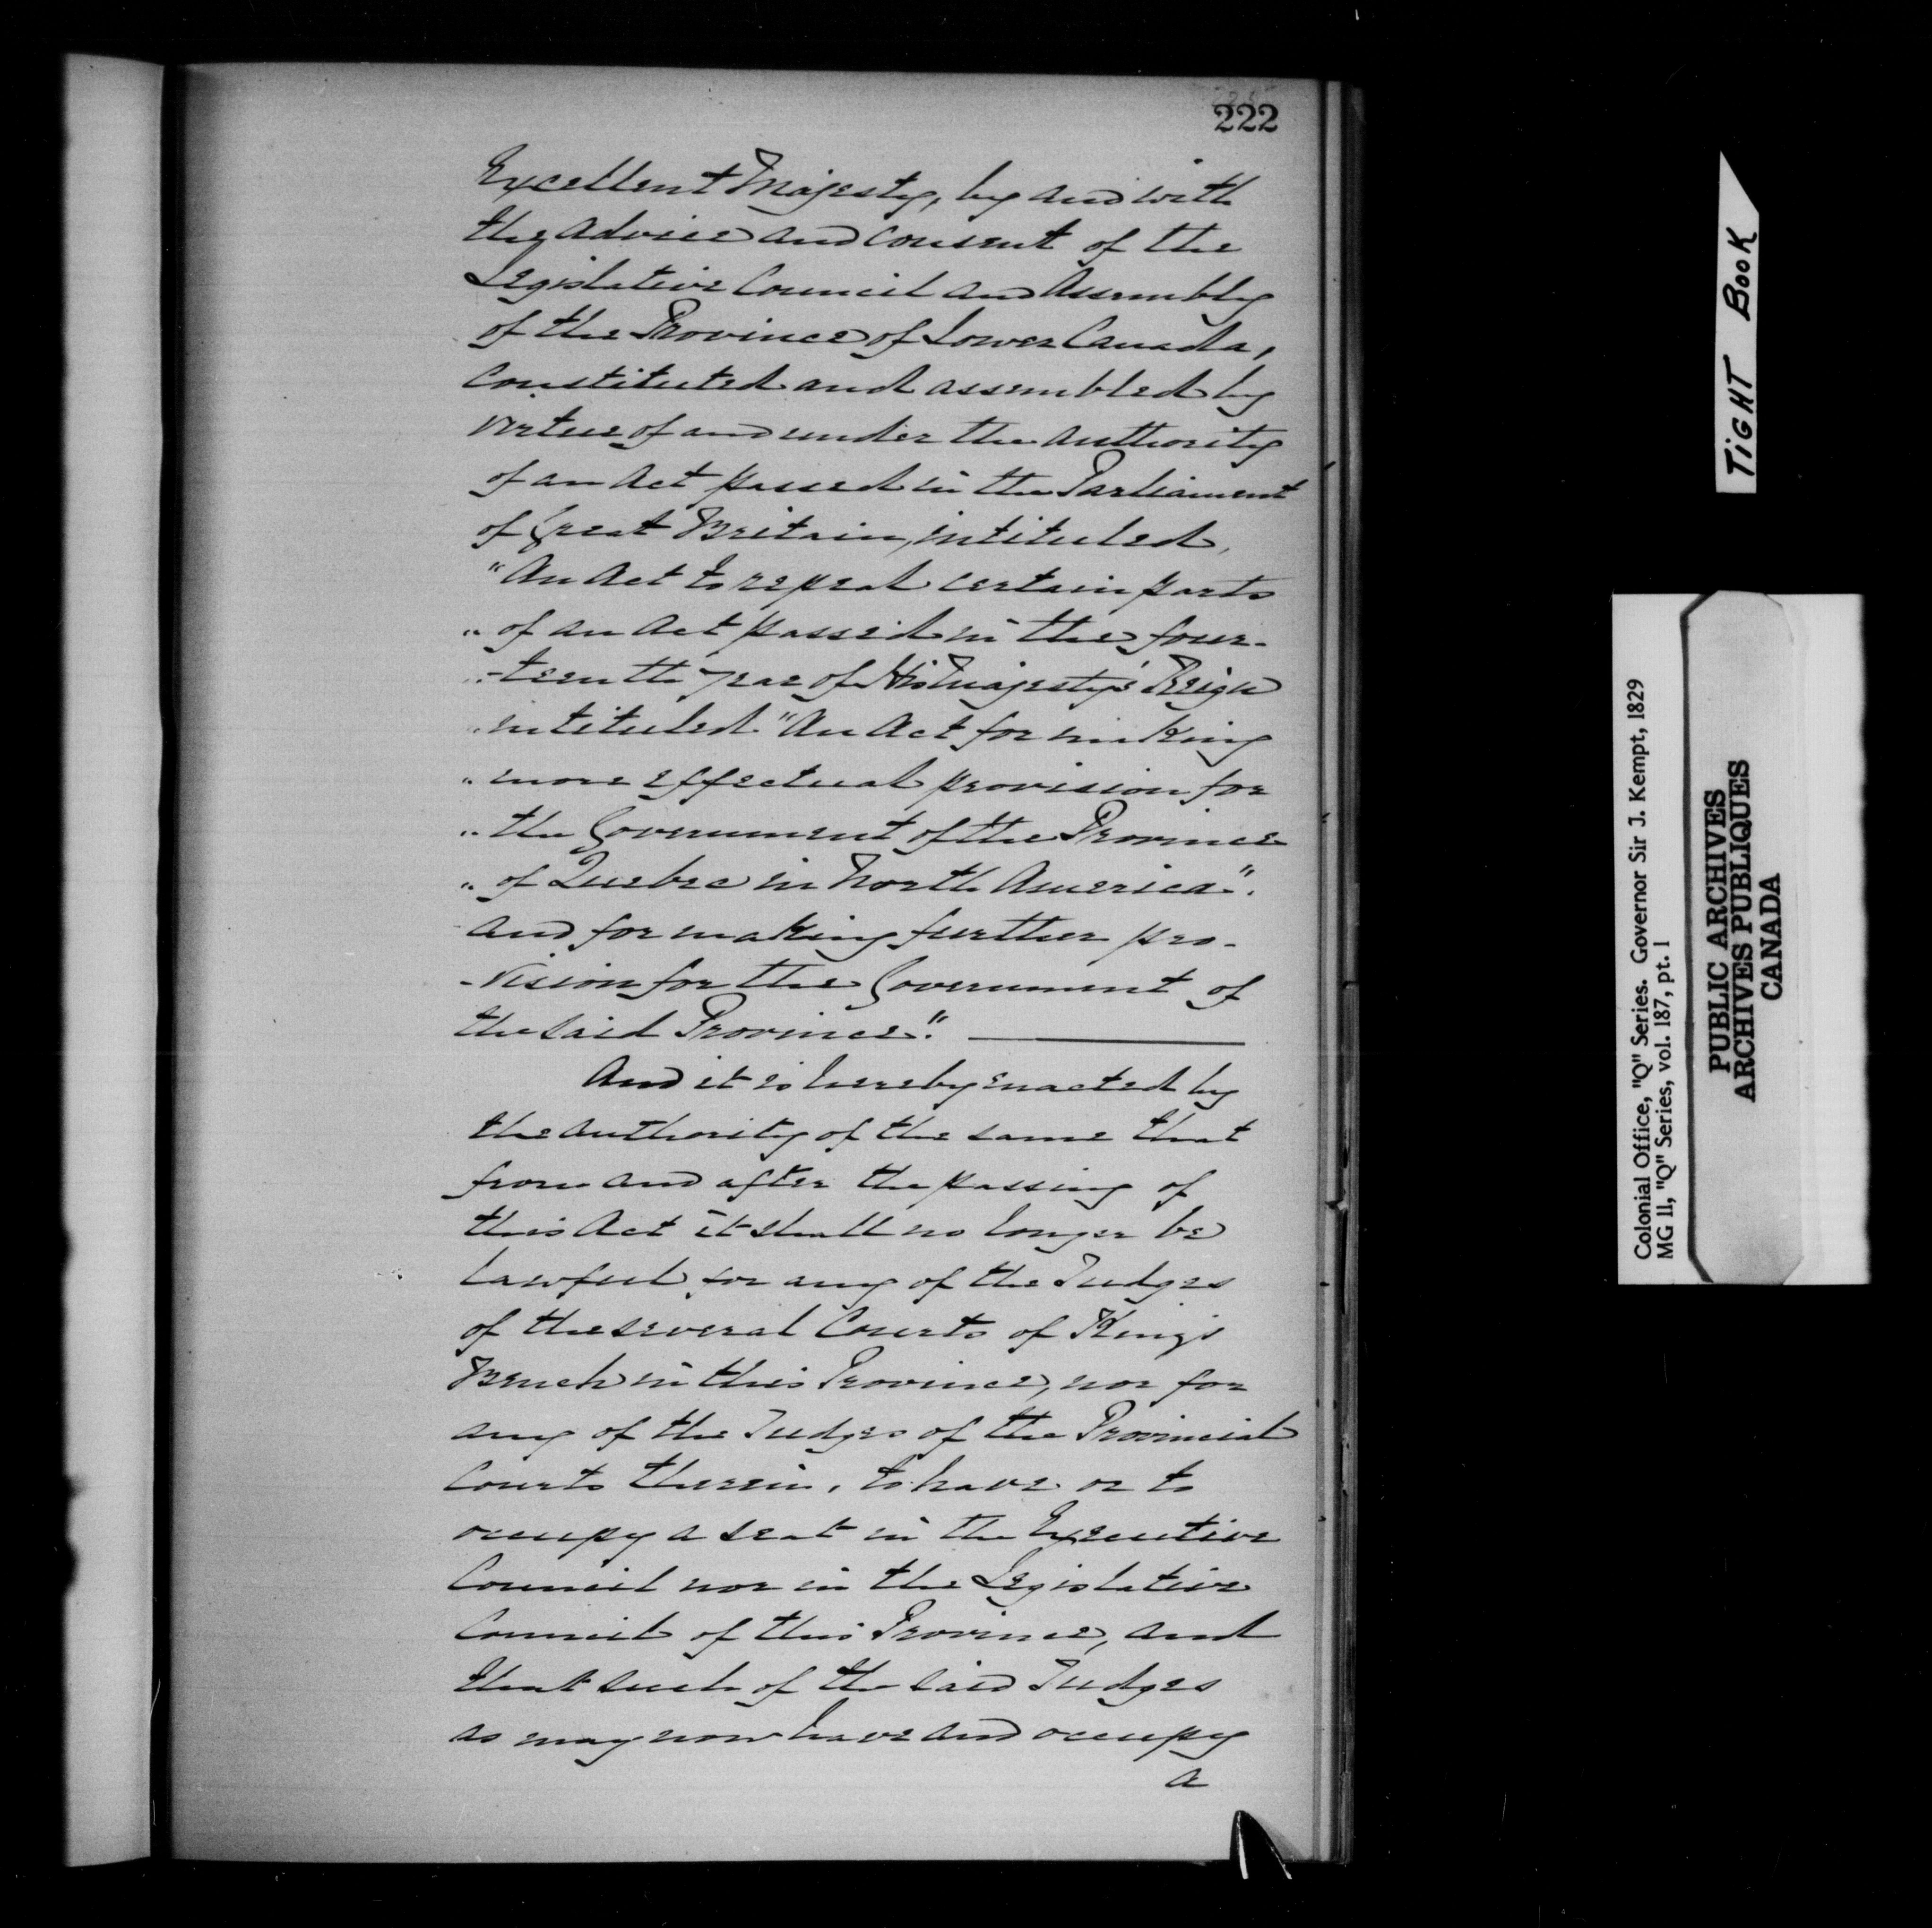 222
Excellent Majesty, by and with
the advice and consent of the
Legislative Council and Assembly
of the Province of Lower Canada,
constituted and assembled by
virtue of and under the authority
of an Act passed in the Parliament
of Great Britain, intituled,
"An Act to repeal certain parts
" of an Act passed in the four-
" -teenth year of His Majesty's Reign
" intituled "An Act for making
" more effectual provision for
" the Government of the Province
" of Quebec in North America".
and for making further pro-
-vision for the Government of
the said Province".
And it is hereby enacted by
the authority of the same that
from and after the passing of
this Act it shall no longer be
lawful for any of the Judges
of the several Courts of King's
Bench in this Province, nor for
any of the Judges of the Provincial
Courts therein, to have or to
occupy a seat in the Executive
Council nor in the Legislative
Council of this Province, and
that such of the said Judges
as may now have and occupy
a
TIGHT BOOK
Colonial Office, "Q" Series. Governor Sir J. Kempt, 1829
MG 11, "Q" Series, vol. 187, pt. 1
PUBLIC ARCHIVES
ARCHIVES PUBLIQUES
CANADA